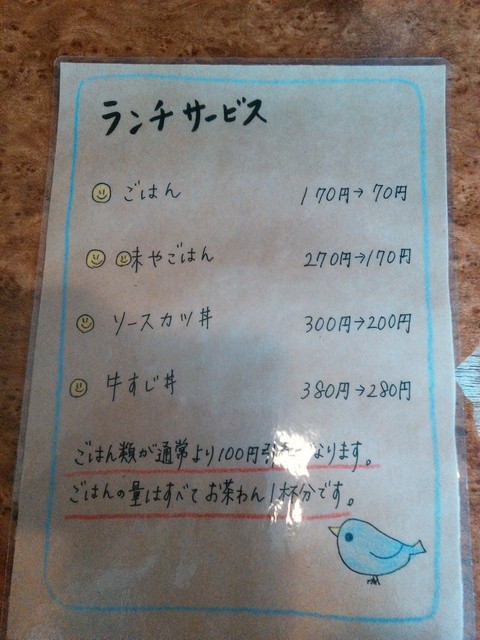 ランチサービス
ごはん 170円→70円
味やごはん 270円→170円
ソースカツ丼 300円→200円
牛すじ丼 380円→280円
ごはん類が通常より100円引きになります。
ごはんの量はすべてお茶わん1杯分です。